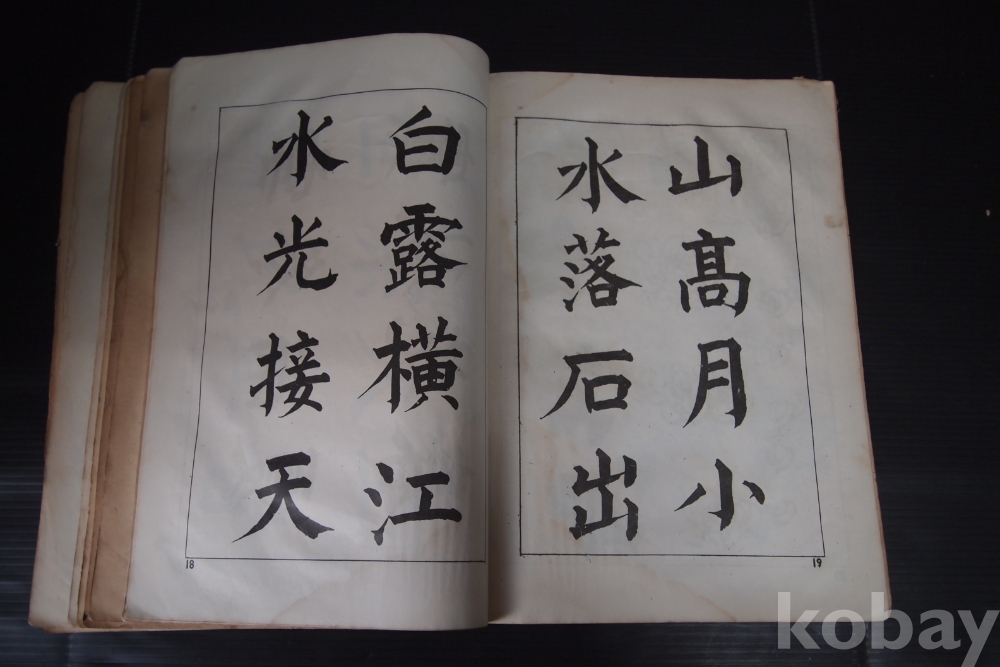 白露橫江
水光接天
18
山高月小
水落石出
19
kobay